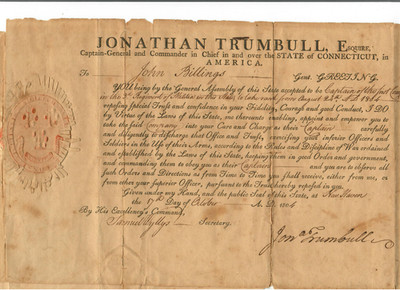 JONATHAN TRUMBULL, ESQUIRE,
Captain-General and Commander in Chief in and over the STATE of CONNECTICUT, in
AMERICA.
To John Billings Gent. GREETING.
YOU being by the General Assembly of this State accepted to be Captain of the
Company in the Regiment of Militia in this State, to take rank from August 1804
reposing special Trust and Confidence in your Fidelity, Courage and good Conduct, I DO
by Virtue of the Laws of this State, me thereunto enabling, appoint and empower you to
take the said Company into your Care and Charge as their Captain carefully
and diligently to discharge that Office and Trust, exercising your inferior Officers and
Soldiers in the Use of their Arms, according to the Rules and Discipline of War ordained
and established by the Laws of this State, keeping them in good Order and Government,
and commanding them to obey you as their Captain and you are to observe all
such Orders and Directions as from Time to Time you shall receive, either from me, or
from other your superior Officer, pursuant to the Trust hereby reposed in you.
Given under my Hand, and the public Seal of this State, at New Haven
the 17th Day of October A.D. 1804
By His Excellency's Command,
Samuel Wyllys Secretary.
Jon.ⁿ Trumbull